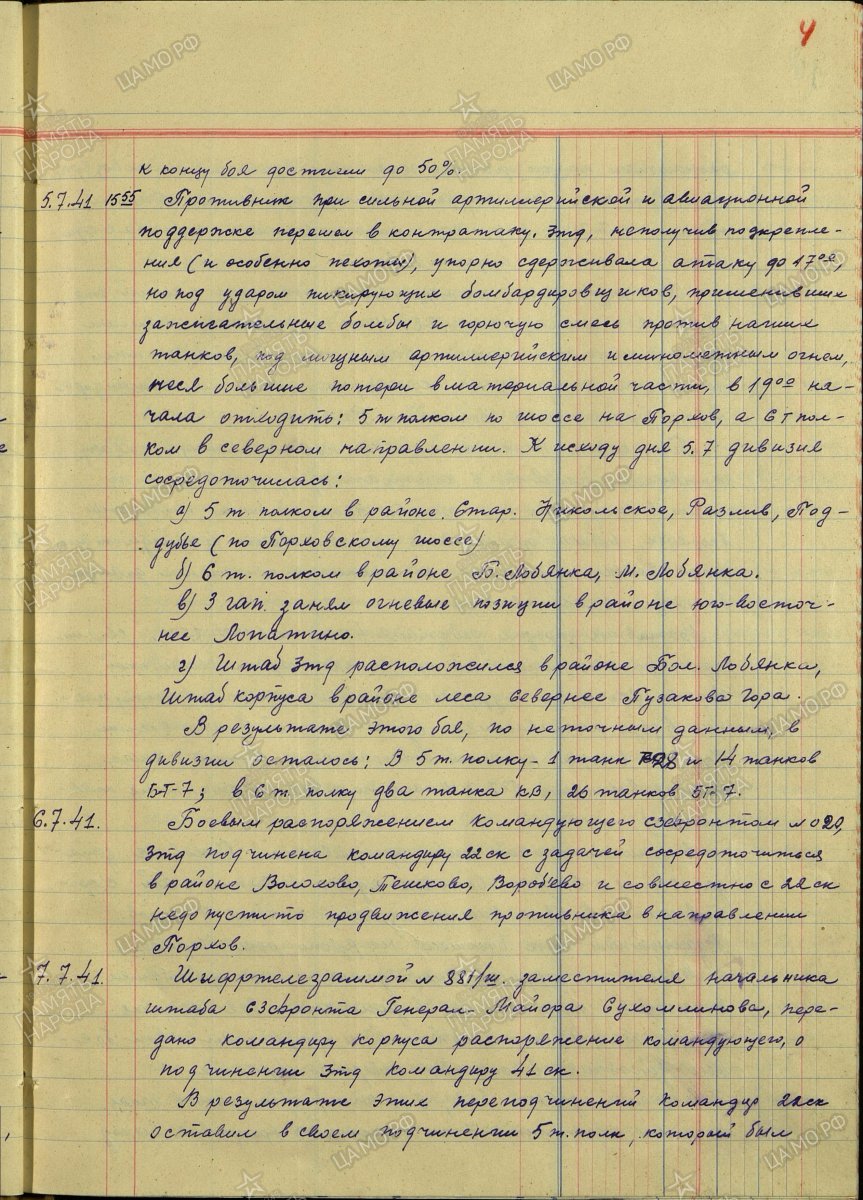 4
к концу боя достигли до 50%.
5.7.41 15 55 Противник при сильной артиллерийской и авиационной
поддержке перешел в контратаку. 3тд, неполучив подкрепле-
ния (и особенно пехоты), упорно сдерживала атаку до 17 00,
но под ударом пикирующих бомбардировщиков, применивших
зажигательные бомбы и горючую смесь против наших
танков, под мощным артиллерийским и минометным огнем,
неся большие потери в материальной части, в 19 00 на-
чала отходить: 5 т полком по шоссе на Порхов, а 6 т пол-
ком в северном направлении. К исходу дня 5.7 дивизия
сосредоточилась:
а) 5 т. полком в районе. Стар. Никольское, Разлив, Под-
дубье (по Порховскому шоссе)
б) 6 т. полком в районе Б. Лобянка, М. Лобянка.
в) 3 гап. занял огневые позиции в районе юго-восточ-
нее Лопатино.
г) Штаб 3тд расположился в районе Бол. Лобянка,
Штаб корпуса в районе леса севернее Пузакова гора.
В результате этого боя, по неточным данным, в
дивизии осталось: В 5 т. полку - 1 танк и 14 танков
БТ-7; в 6 т. полку два танка КВ, 26 танков БТ-7.
6.7.41. Боевым распоряжением командующего сзфронтом № 020,
3тд подчинена командиру 22ск с задачей сосредоточиться
в районе Волохово, Тешково, Воробьево и совместно с 22ск
недопустить продвижения противника в направлении
Порхов.
7.7.41. Шифртелеграммой № 881/ш. заместителя начальника
штаба сзфронта Генерал-Майора Сухомлинова, пере-
дано командиру корпуса распоряжение командующего, о
подчинении 3тд командиру 41 ск.
В результате этих переподчинений командир 22ск
оставил в своем подчинении 5 т. полк, который был